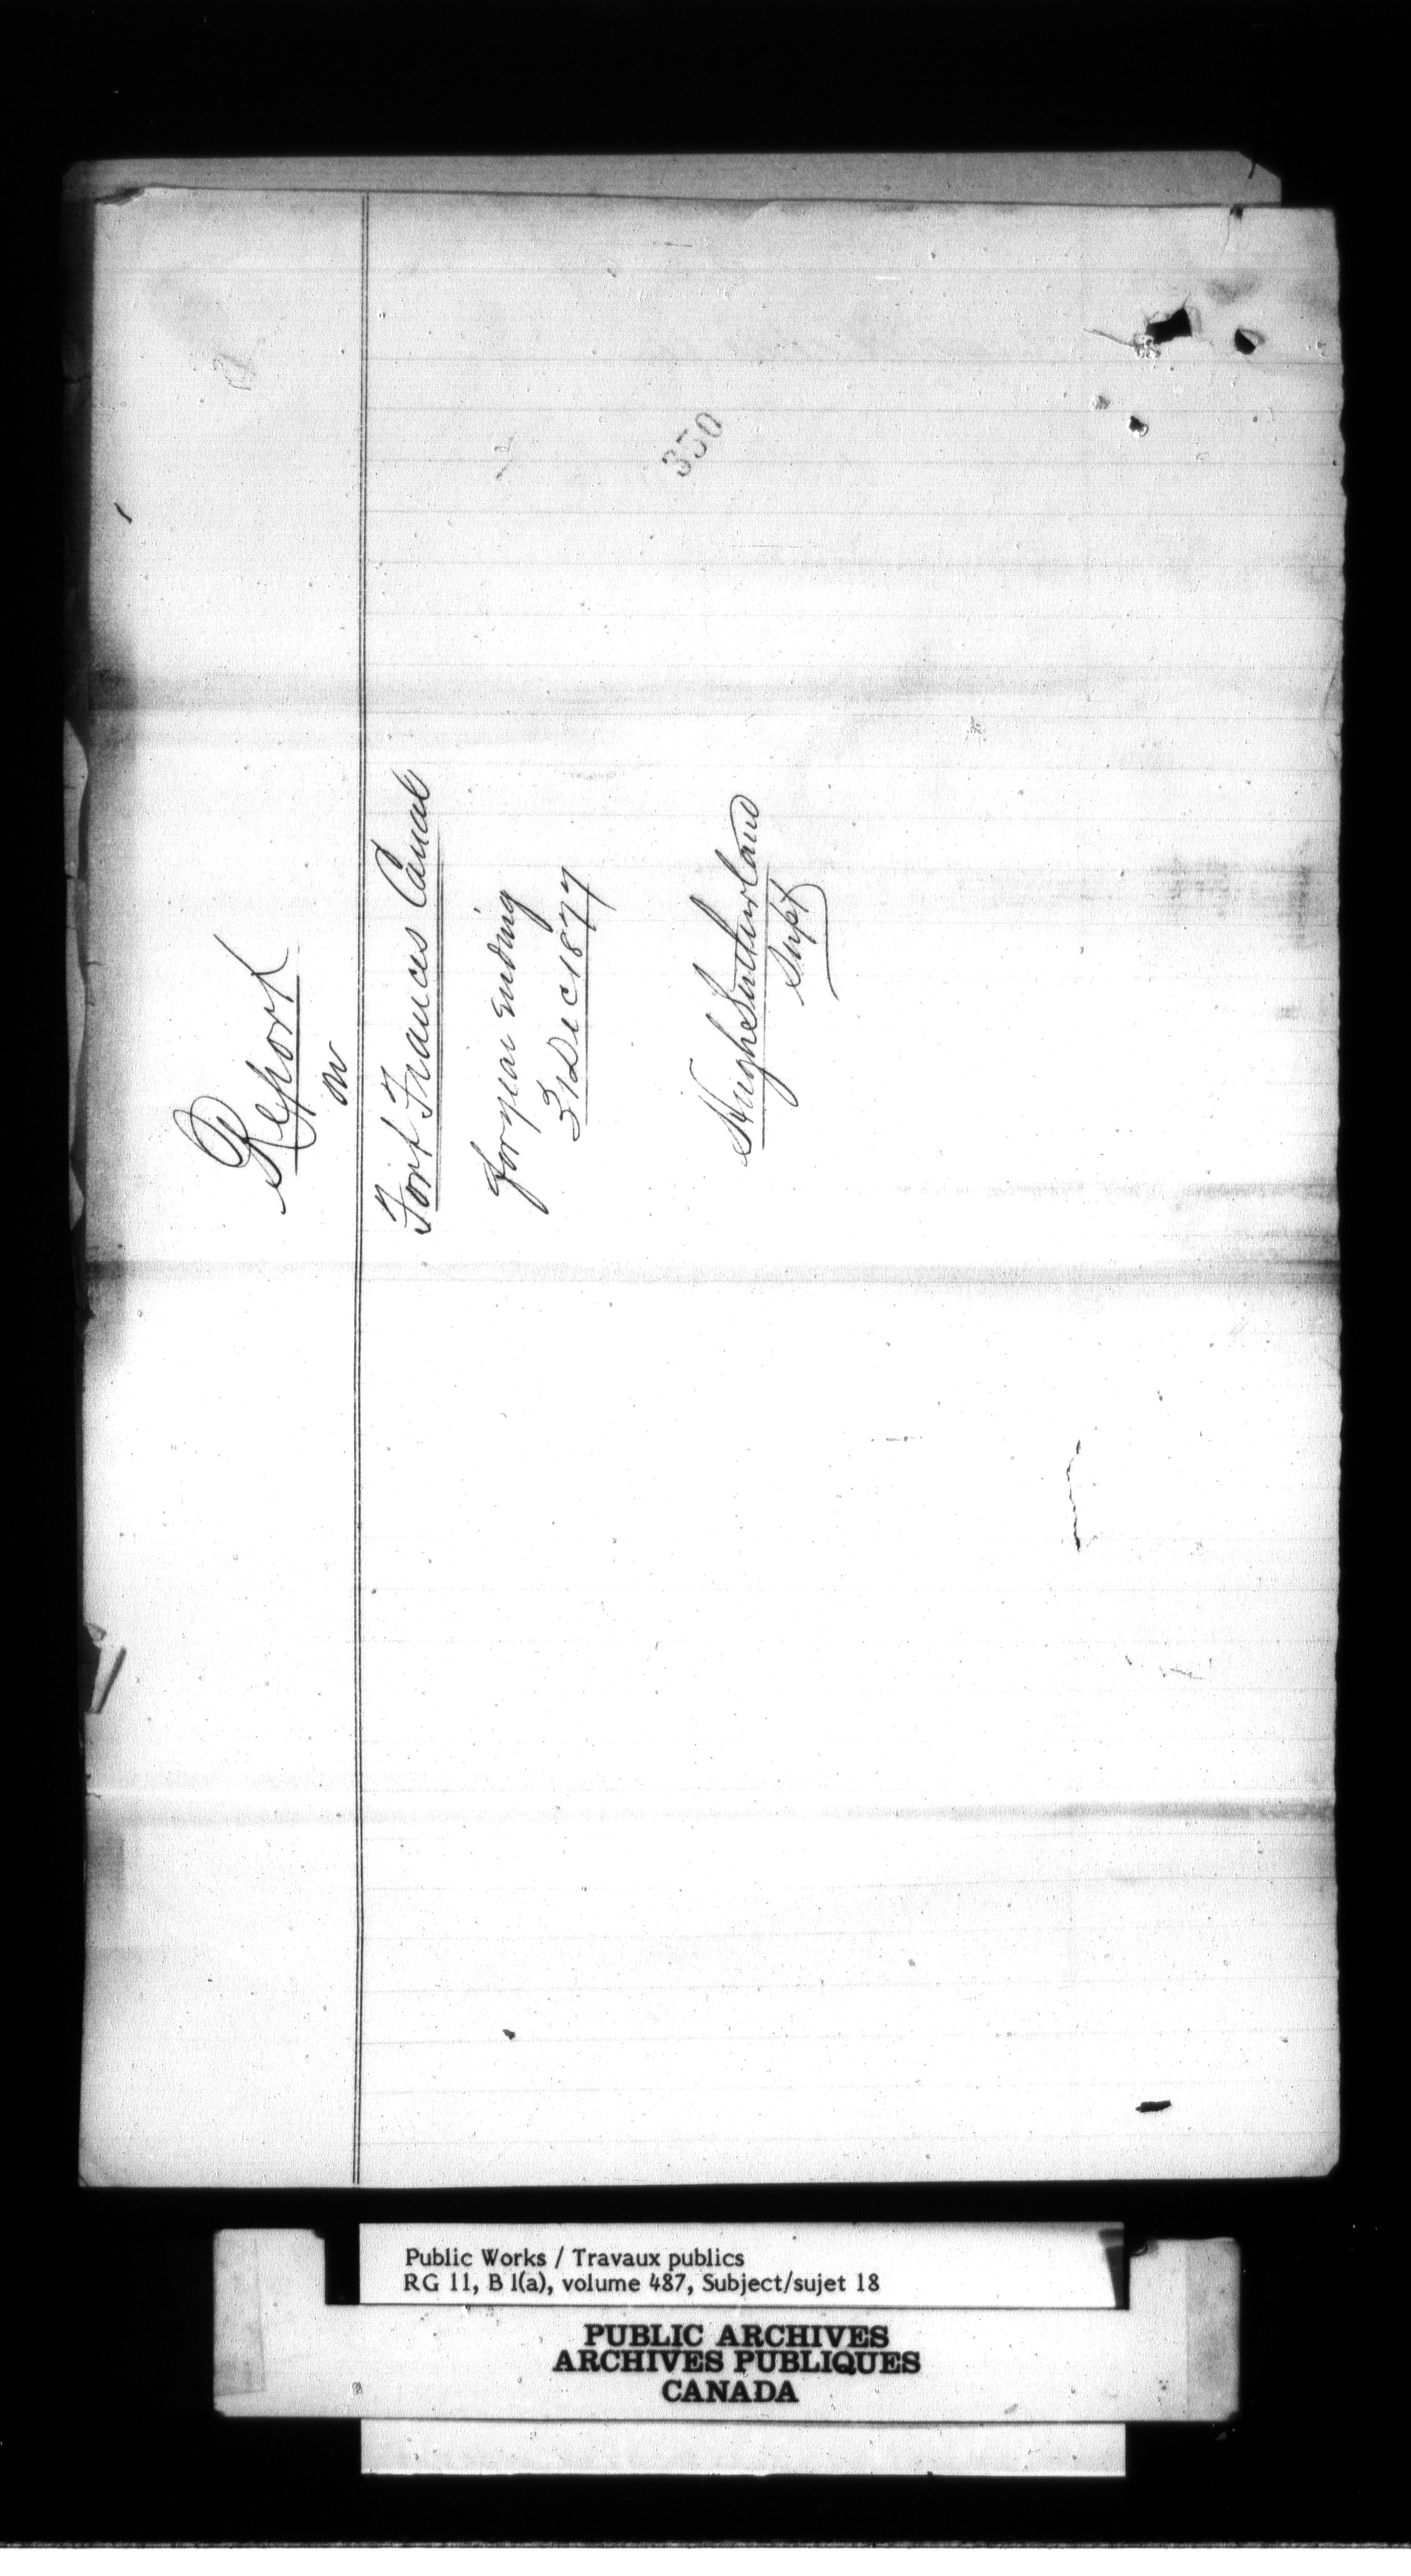 Report
on
Fort Frances Canal
for year ending
31 Dec 1877
Hugh Sutherland
Supt
350
Public Works / Travaux publics
RG 11, B 1(a), volume 487, Subject/sujet 18
PUBLIC ARCHIVES
ARCHIVES PUBLIQUES
CANADA